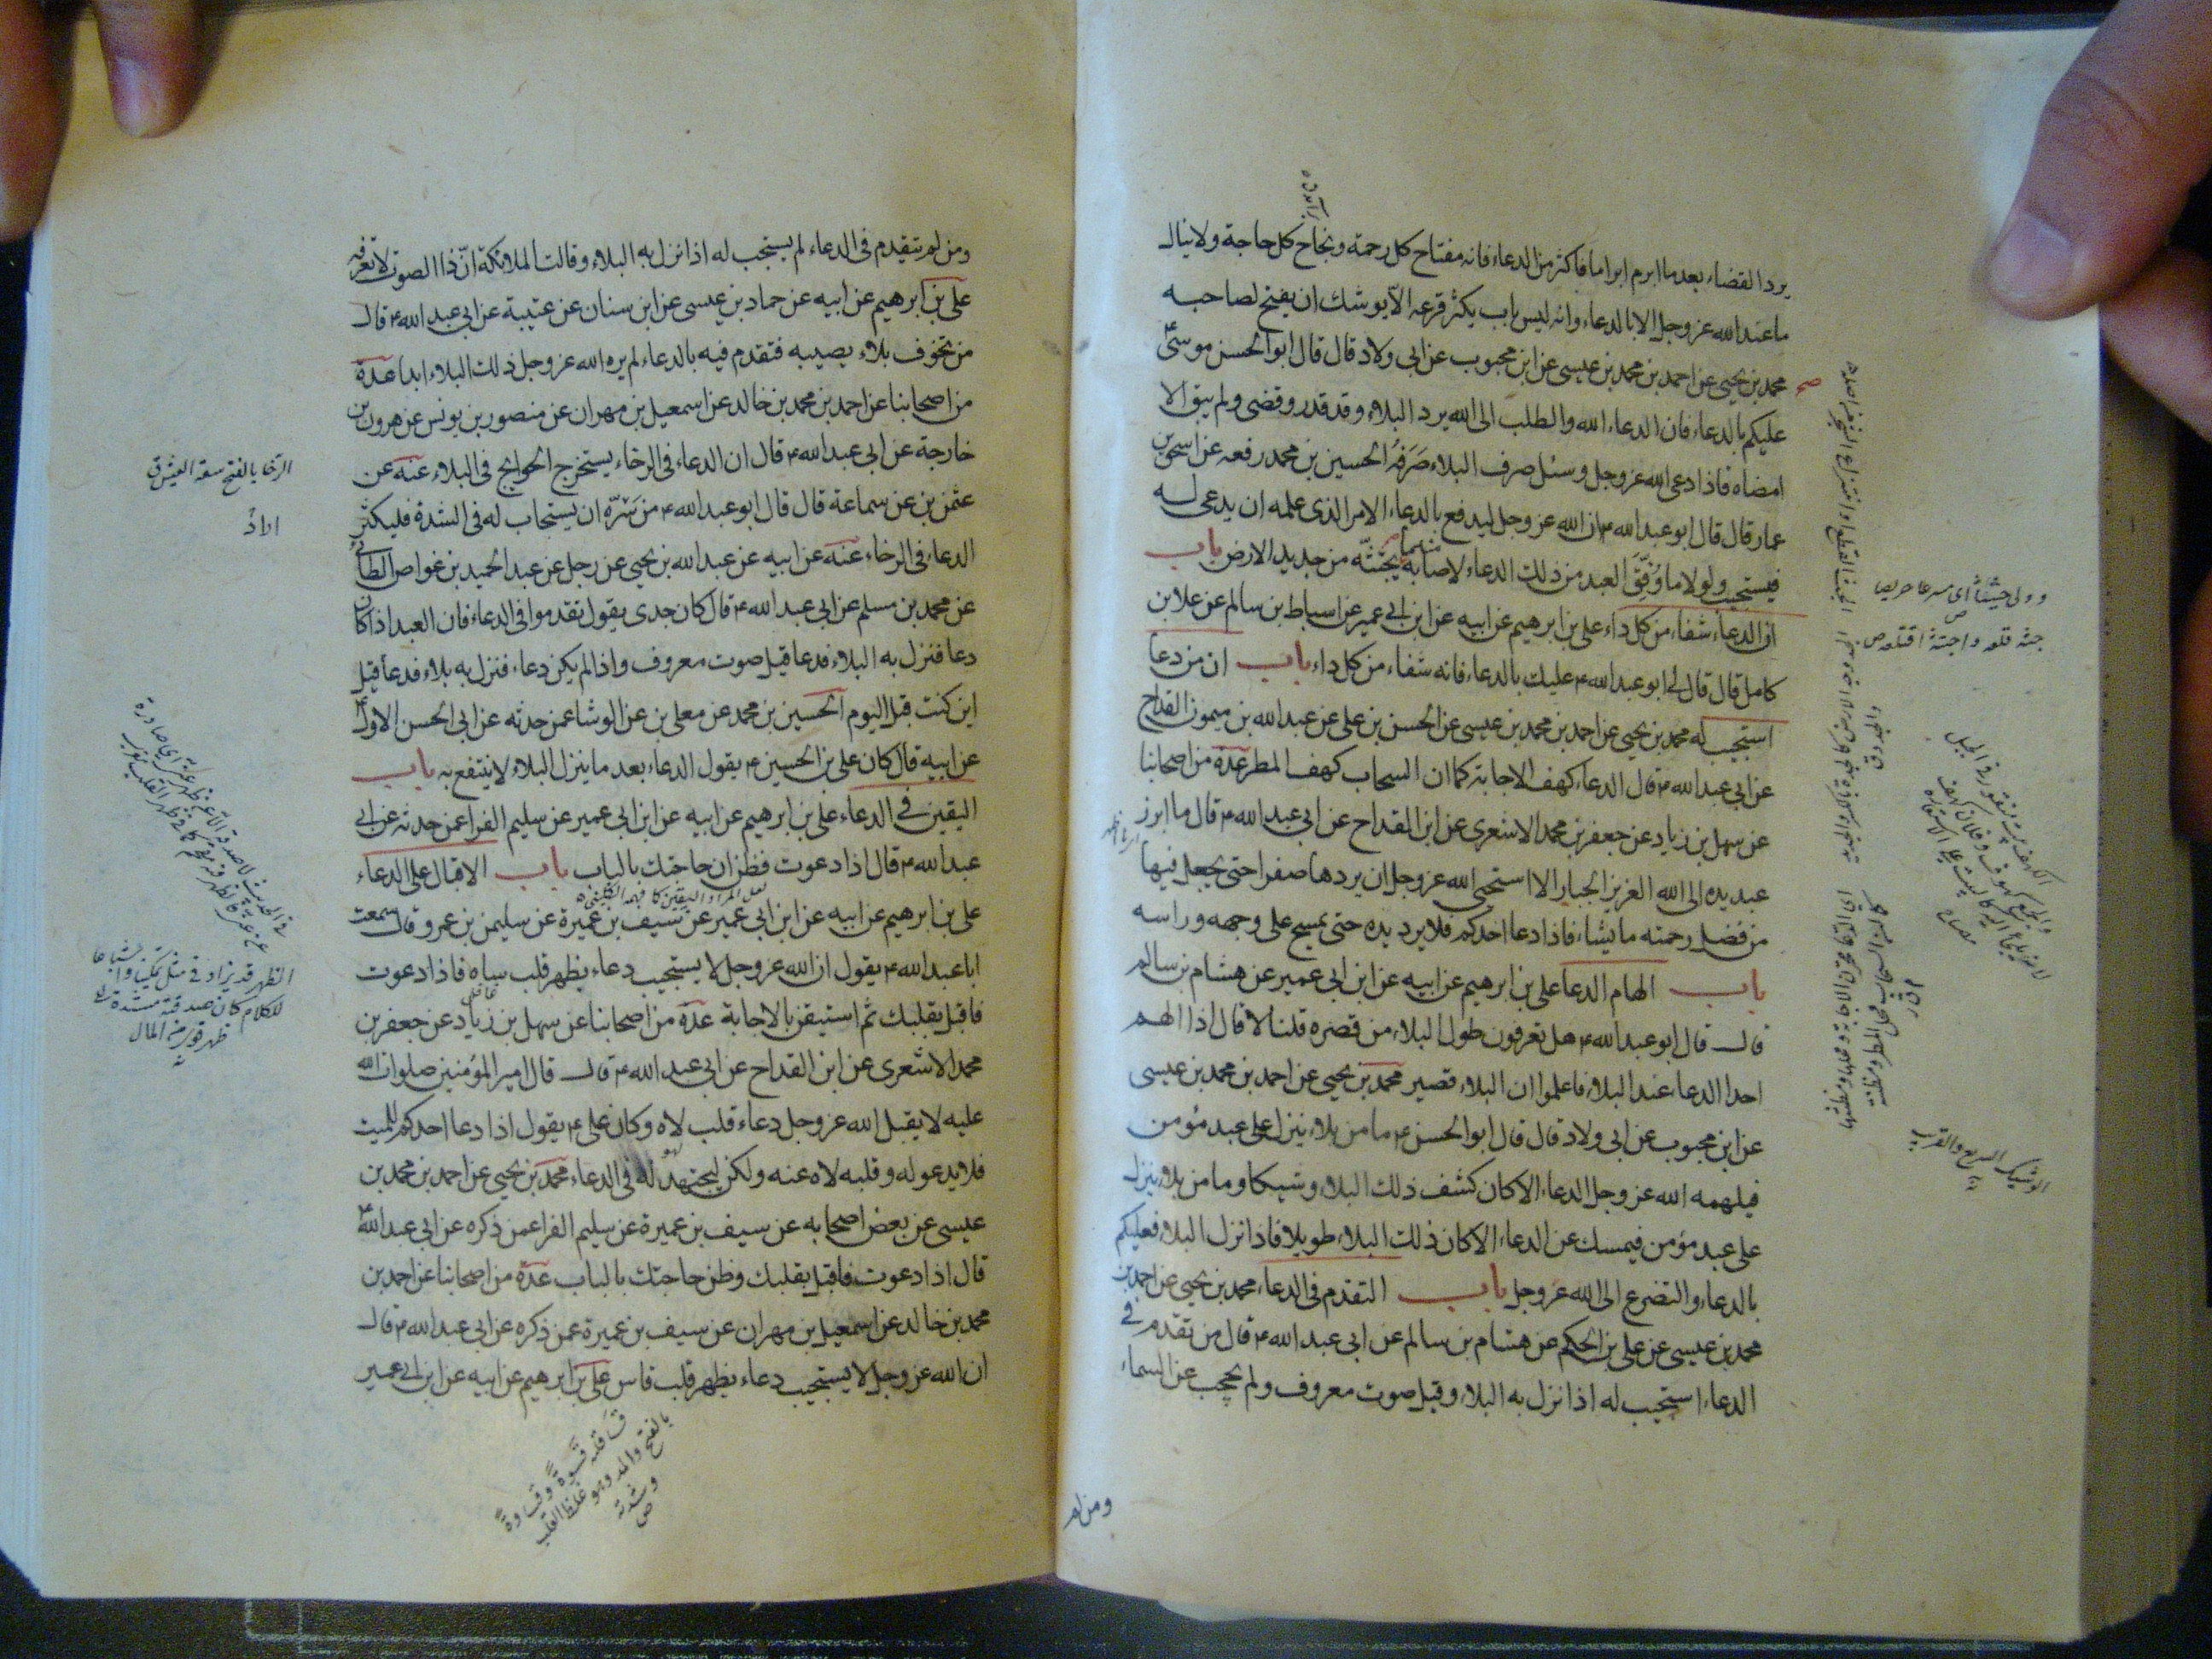 يرد القضاء بعد ما ابرم ابراما فاكثر من الدعاء فانه مفتاح كل رحمة ونجاح كل حاجة ولا ينال
ما عند الله عز وجل الا بالدعاء وانه ليس باب يكثر قرعه الا يوشك ان يفتح لصاحبه
محمد بن يحيى عن احمد بن محمد بن عيسى عن ابن محبوب عن ابى ولاد قال قال ابو الحسن موسى ع
عليكم بالدعاء فان الدعاء الله والطلب الى الله يرد البلاء وقد قدر وقضى ولم يبق الا
امضاه فاذا دعى الله عز وجل وسئل صرف البلاء صَرَفَهُ الحسين بن محمد رفعه عن اسحق بن
عمار قال قال ابو عبد الله ع ان الله عز وجل ليدفع بالدعاء الامر الذى علمه ان يدعى له
فيستجيب ولولا ما وُفِّقَ العبد من ذلك الدعاء لاصابه منه ما يجثثّه من جديد الارض باب
ان الدعاء شفاء من كل داء على بن ابرهيم عن ابيه عن ابن ابى عمير عن اسباط بن سالم عن علا بن
كامل قال قال لى ابو عبد الله ع عليك بالدعاء فانه شفاء من كل داء باب ان من دعا
استجيب له محمد بن يحيى عن احمد بن محمد بن عيسى عن الحسن بن على عن عبد الله بن ميمون القداح
عن ابى عبد الله ع قال الدعاء كهف الاجابة كما ان السحاب كهف المطر عدة من اصحابنا
عن سهل بن زياد عن جعفر بن محمد الاشعرى عن ابن القداح عن ابى عبد الله ع قال ما ابرز
عبد يده الى الله العزيز الجبار الا استحيى الله عز وجل ان يردها صفرا حتى يجعل فيها
من فضل رحمته ما يشاء فاذا دعا احدكم فلا يرد يده حتى يمسح على وجهه وراسه
باب الهام الدعا على بن ابرهيم عن ابيه عن ابن ابى عمير عن هشام بن سالم
قال قال ابو عبد الله ع هل تعرفون طول البلاء من قصره قلنا لا قال اذا الهم
احدا الدعاء عند البلاء فاعلموا ان البلاء قصير محمد بن يحيى عن احمد بن محمد بن عيسى
عن ابن محبوب عن ابى ولاد قال قال ابو الحسن ع ما من بلاء ينزل على عبد مؤمن
فيلهمه الله عز وجل الدعاء الا كان كشف ذلك البلاء وشيكا وما من بلاء ينزل
على عبد مؤمن فيمسك عن الدعاء الا كان ذلك البلاء طويلا فاذا نزل البلاء فعليكم
بالدعاء والتضرع الى الله عز وجل باب التقدم فى الدعاء محمد بن يحيى عن احمد بن
محمد بن عيسى عن على بن الحكم عن هشام بن سالم عن ابى عبد الله ع قال من تقدم فى
الدعاء استجيب له اذا نزل به البلاء وقيل صوت معروف ولم يحجب عن السماء
ومن لم
وولى حثيثا اى مسرعا حريصا ص
جثه قلعه واجتثه اقتلعه ص
الوشيك السريع والقريب
ومن لم يتقدم فى الدعاء لم يستجب له اذا نزل به البلاء وقالت الملائكة انّ ذا الصوت لا نعرفه
على بن ابرهيم عن ابيه عن حماد بن عيسى عن ابن سنان عن عتيبة عن ابى عبد الله ع قال
من تخوف بلاء يصيبه فتقدم فيه بالدعاء لم يره الله عز وجل ذلك البلاء ابدا عدة
من اصحابنا عن احمد بن محمد بن خالد عن اسمعيل بن مهران عن منصور بن يونس عن هرون بن
خارجة عن ابى عبد الله ع قال ان الدعاء فى الرخاء يستخرج الحوايج فى البلاء عنه عن
عثمن بن عن سماعة قال قال ابو عبد الله ع من سَرَّه ان يستجاب له فى الشدة فليكثر
الدعاء فى الرخاء عنه عن ابيه عن عبد الله بن يحيى عن رجل عن عبد الحميد بن غواص الطائى
عن محمد بن مسلم عن ابى عبد الله ع قال كان جدى يقول تقدموا فى الدعاء فان العبد اذا كان
دعا فنزل به البلاء فدعا قيل صوت معروف واذا لم يكن دعاء فنزل به بلاء فدعا قيل
اين كنت قبل اليوم الحسين بن محمد عن معلى بن عن الوشا عمن حدثه عن ابى الحسن الاول ع
عن ابيه قال كان على بن الحسين ع يقول الدعاء بعد ما ينزل البلاء لا ينتفع به باب
اليقين فى الدعاء على بن ابرهيم عن ابيه عن ابن ابى عمير عن سليم الفرا عمن حدثه عن ابى
عبد الله ع قال اذا دعوت فظن ان حاجتك بالباب باب الاقبال على الدعاء
لعل المراد اليقين كما فهمه الكلينى ره
على بن ابرهيم عن ابيه عن ابن ابى عمير عن سيف بن عميرة عن سليمن بن عمرو قال سمعت
ابا عبد الله ع يقول ان الله عز وجل لا يستجيب دعاء بظهر قلب ساه فاذا دعوت
فاقبل بقلبك ثم استيقن بالاجابة عدة من اصحابنا عن سهل بن زياد عن جعفر بن
محمد الاشعرى عن ابن القداح عن ابى عبد الله ع قال قال امير المؤمنين صلوات الله
عليه لا يقبل الله عز وجل دعاء قلب لاه وكان على ع يقول اذا دعا احدكم للميت
فلا يدعو له وقلبه لاه عنه ولكن ليجتهد له فى الدعاء محمد بن يحيى عن احمد بن محمد بن
عيسى عن بعض اصحابه عن سيف بن عميرة عن سليم الفرا عمن ذكره عن ابى عبد الله ع
قال اذا دعوت فاقبل بقلبك وظن حاجتك بالباب عدة من اصحابنا عن احمد بن
محمد بن خالد عن اسمعيل بن مهران عن سيف بن عميرة عمن ذكره عن ابى عبد الله ع قال
ان الله عز وجل لا يستجيب دعاء بظهر قلب قاس على بن ابرهيم عن ابيه عن ابن ابى عمير
الرخا بالفتح سعة العيش ق
الظهر قد يزاد فى مثل
للكلام كان صدقته مستندة الى
ظهر قوى من المال
قسا قلبه قسوة وقساوة
بالفتح والمد وهو غلظ القلب
وشدته
ص